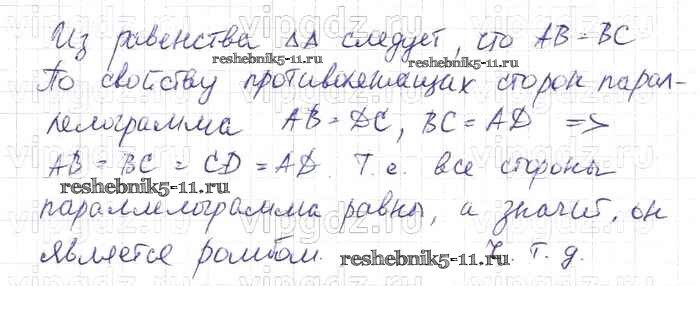 Из равенства ΔΔ следует, что AB = BC
reshebnik5-11.ru reshebnik5-11.ru
По свойству противолежащих сторон парал-
лелограмма AB = DC, BC = AD =>
AB = BC = CD = AD. Т.е. все стороны
reshebnik5-11.ru
параллелограмма равны, а значит, он
является ромбом. Ч. т. д.
reshebnik5-11.ru